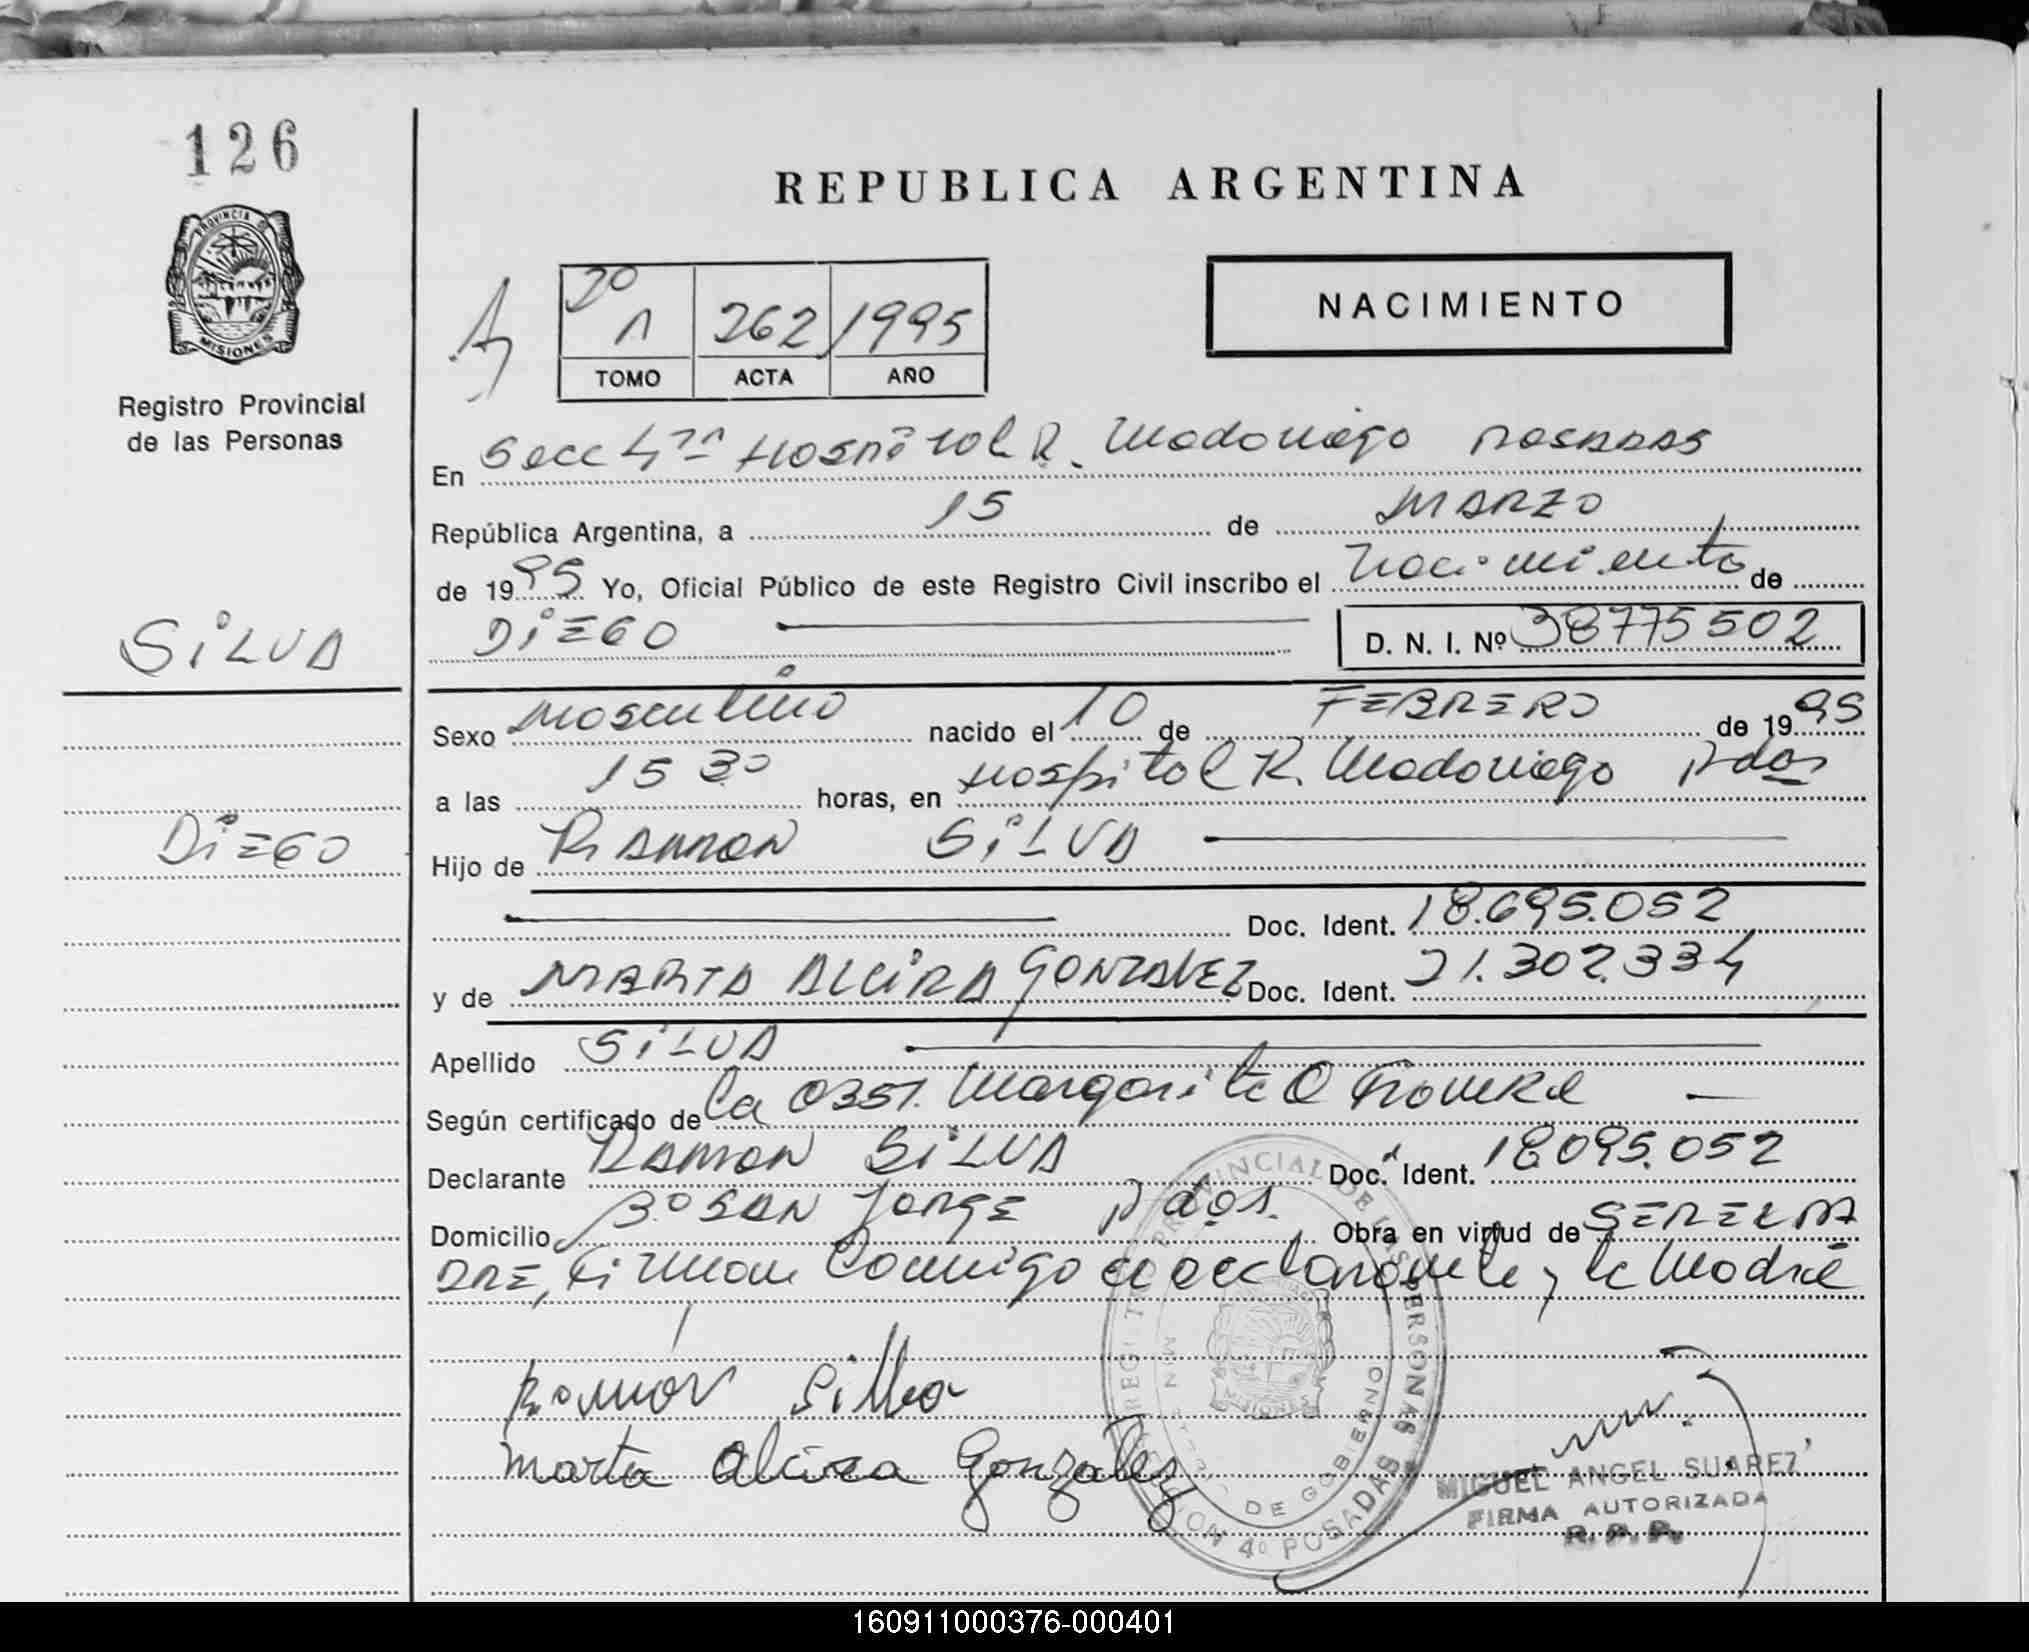 126
PROVINCIA D
MISIONES
Registro Provincial
de las Personas
SILVA
DIEGO
REPUBLICA ARGENTINA
NACIMIENTO
2º
1 262 1995
TOMO ACTA AÑO
En Secc 4ta Hospital R. Madariaga POSADAS
República Argentina, a 15 de MARZO
de 1995 Yo, Oficial Público de este Registro Civil inscribo el Nacimiento de
DIEGO D. N. I. Nº 38775502
Sexo Masculino nacido el 10 de FEBRERO de 1995
a las 15 30 horas, en Hospital R. Madariaga Pdas
Hijo de RAMON SILVA
Doc. Ident. 18.695.052
y de MARTA ALCIRA GONZALEZ Doc. Ident. 21.302.334
Apellido SILVA
Según certificado de la OBST. Margarita O
Declarante RAMON SILVA Doc. Ident. 18695.052
Domicilio Bº SAN JORGE Pdas. Obra en virtud de SER EL PA
DRE, Firman Conmigo el declarante y la Madre
Ramón Silba
Marta Alcira Gonzalez
REGISTRO PROVINCIAL DE LAS PERSONAS
DE GOBIERNO
4º POSADAS
MIGUEL ANGEL SUAREZ
FIRMA AUTORIZADA
R. P. P.
160911000376-000401